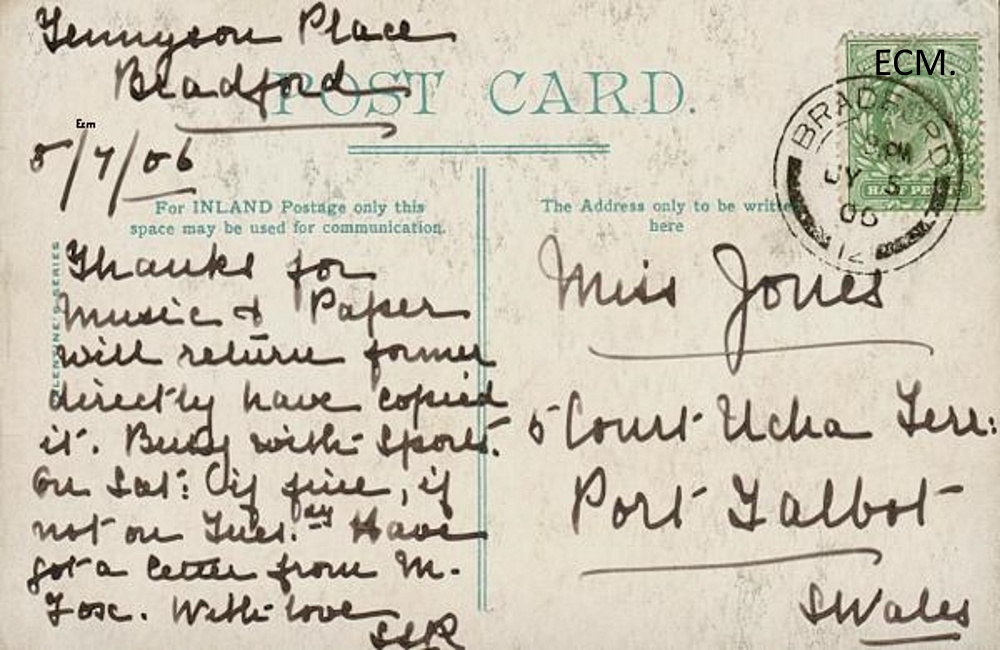 Tennyson Place
Bradford
POST CARD.
Ecm
5/7/06
ECM.
BRADFORD
PM
JY 5
06
12
HALF PENNY
For INLAND Postage only this
space may be used for communication.
The Address only to be written
here
Thanks for
Music & Paper
will return former
directly have copied
it. Busy with Sports.
on Sat: (if fine, if
not on Tues.day Have
got a letter from M.
Fox. With love
SSR
Miss Jones
5 Court Ucha Terr:
Port Talbot
S Wales